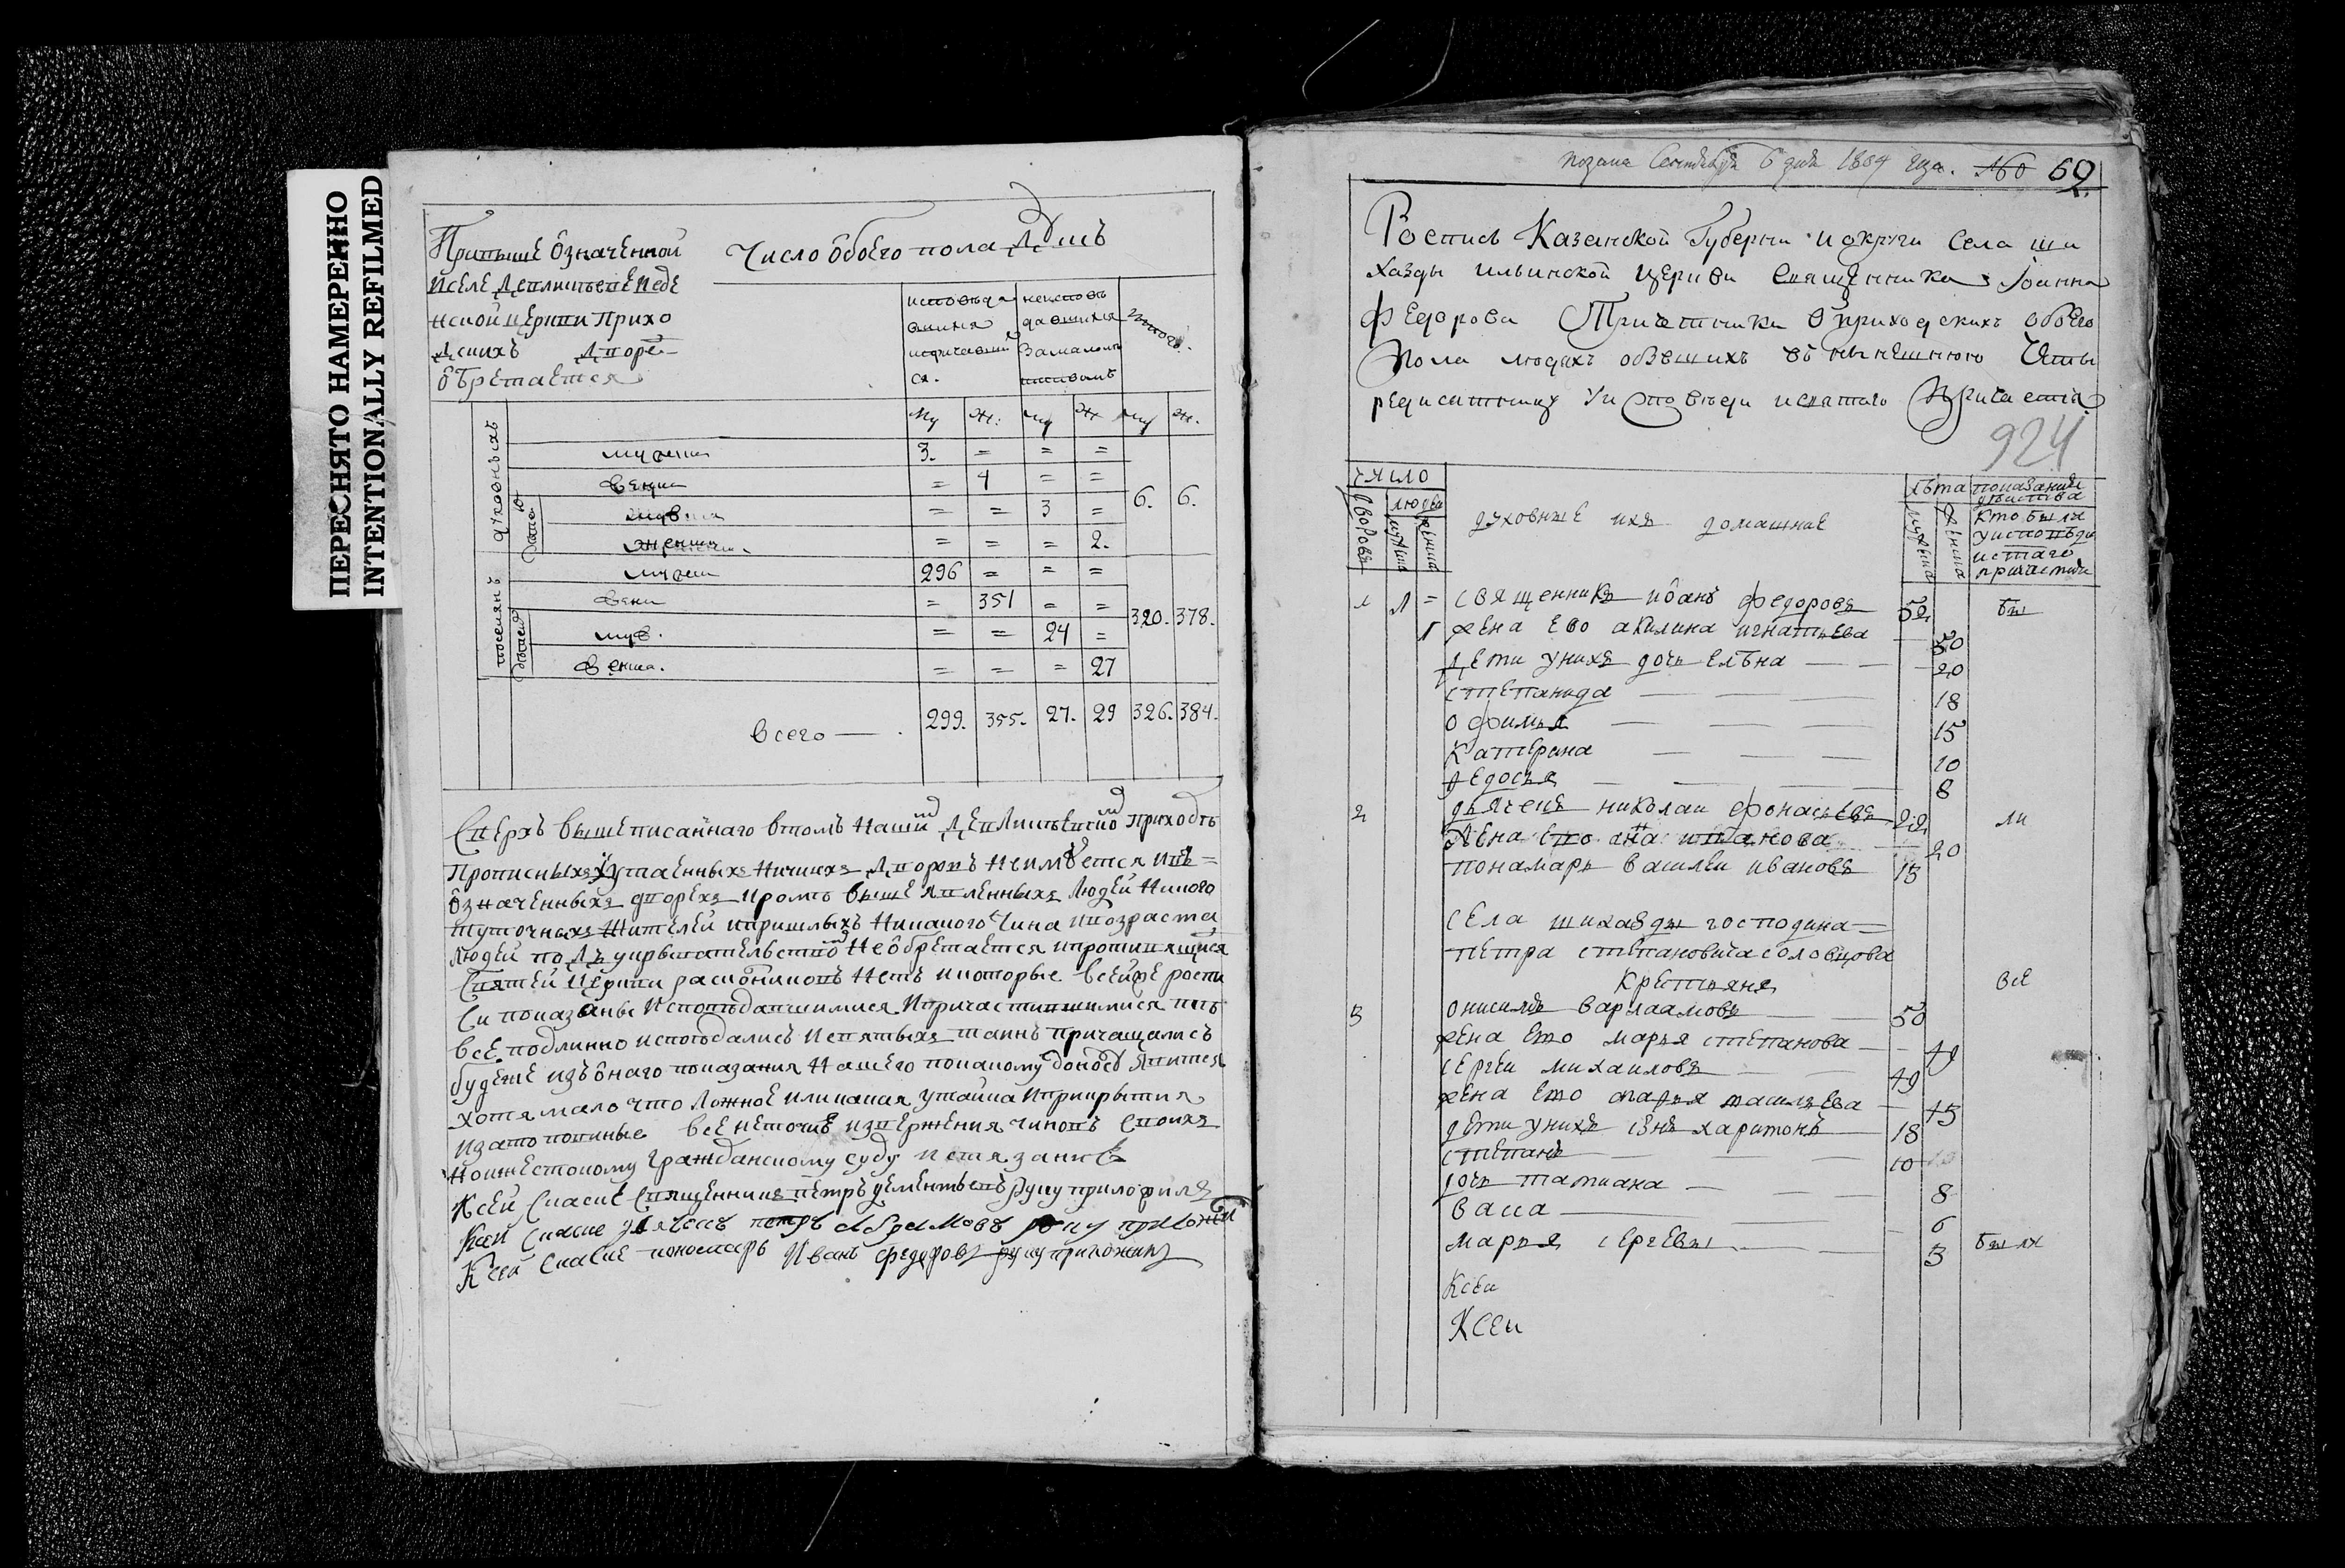 ПЕРЕСНЯТО НАМЕРЕННО
INTENTIONALLY REFILMED
При выше означенной
церкви Прихо
дскихъ дворе
обретается
Число обоего пола душъ
исповеда неисповѣ
вшихся давшихся
и причавши за малолѣ
ся.
духовныхъ
поселянъ
му ж: му ж му ж.
мужеска 3. = = =
женска = 4 = =
= = 3 = 6. 6.
= = = 2.
мужеск 296 = = =
женс = 351 = =
муж. = = 24 = 320. 378.
женска. = = = 27
всего 299. 355. 27. 29 326. 384.
Сверхъ вышеписаннаго втомъ нашемъ приходѣ
прописныхъ утаенныхъ ничиихъ дворовъ неимѣется ивъ =
означенныхъ дворехъ кромѣ выше явленныхъ людей никого
туточныхъ жителей ипришлыхъ никакого чина ивозраста
людей подъ укрывателствомъ необретается ипротивящихся
святей церкви расколниковъ нетъ икоторые всей же роспи
си показаны исповѣдавшимися ипричастившимися тѣ
всѣ подлинно исповѣдались исвятыхъ таинъ причащались
будеже изъ онаго показания нашего покакому доносъ явится
хотя мало что ложное иликакая утайка иприкрытия
изато повинные все неточию извержения чиновъ своихъ
ноижестокому гражданскому суду истязания
Ксей сказке священникъ петръ дементьевъ руку приложилъ
Ксей сказке дьячекъ петръ руку приложил
Ксей сказке пономарь Иванъ федоровъ руку приложилъ
Сентября 6 дня 1804 года. №0 69
2.
Роспись Казанской Губернии иокруги Села ши
хазды ильинской церкви священника Иоанна
федорова Спричетники оприходскихъ обоего
пола людяхъ обвшихъ въ нынешнюю Четы
редисятницу Уисповеди исвятаго Причастия
924
число
дворовъ
люди
мужеска
женска
духовные ихъ домашние
лѣта
мужеска
женска
показание
действа
кто былъ
уисповѣди
истаго
причастия
1 1 = священникъ иоанъ федоровъ 52 бы
1 жена ево акилина игнатьева 50
дети унихъ дочь елѣна 20
степанида 18
офимья 15
катерина 10
федосья 8
2 дьячекъ николаи афонасьевъ 22 ли
жена ево иванова 20
пономарь василеи ивановъ 18
села шихазды господина
петра степановича соловцова
крестьяня все
3 онисимъ варлаамовъ 50
жена ево марья степанова 49
сергеи михаиловъ 49
жена ево марья васильева 45
дети унихъ сынъ харитонъ 18
степанъ 10
дочь татиана 8
васа 6
марья сергевы 3 были
Ксеи
Ксеи